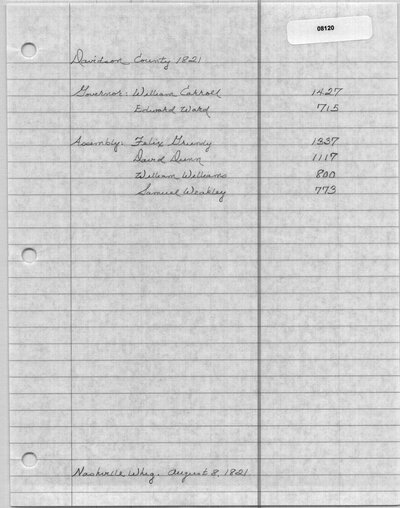 08120
Davidson County 1821
Governor: William Carroll 1427
Edward Ward 715
Assembly: Felix Grundy 1337
David Dunn 1117
William Williams 800
Samuel Weakley 773
Nashville Whig. August 8, 1821